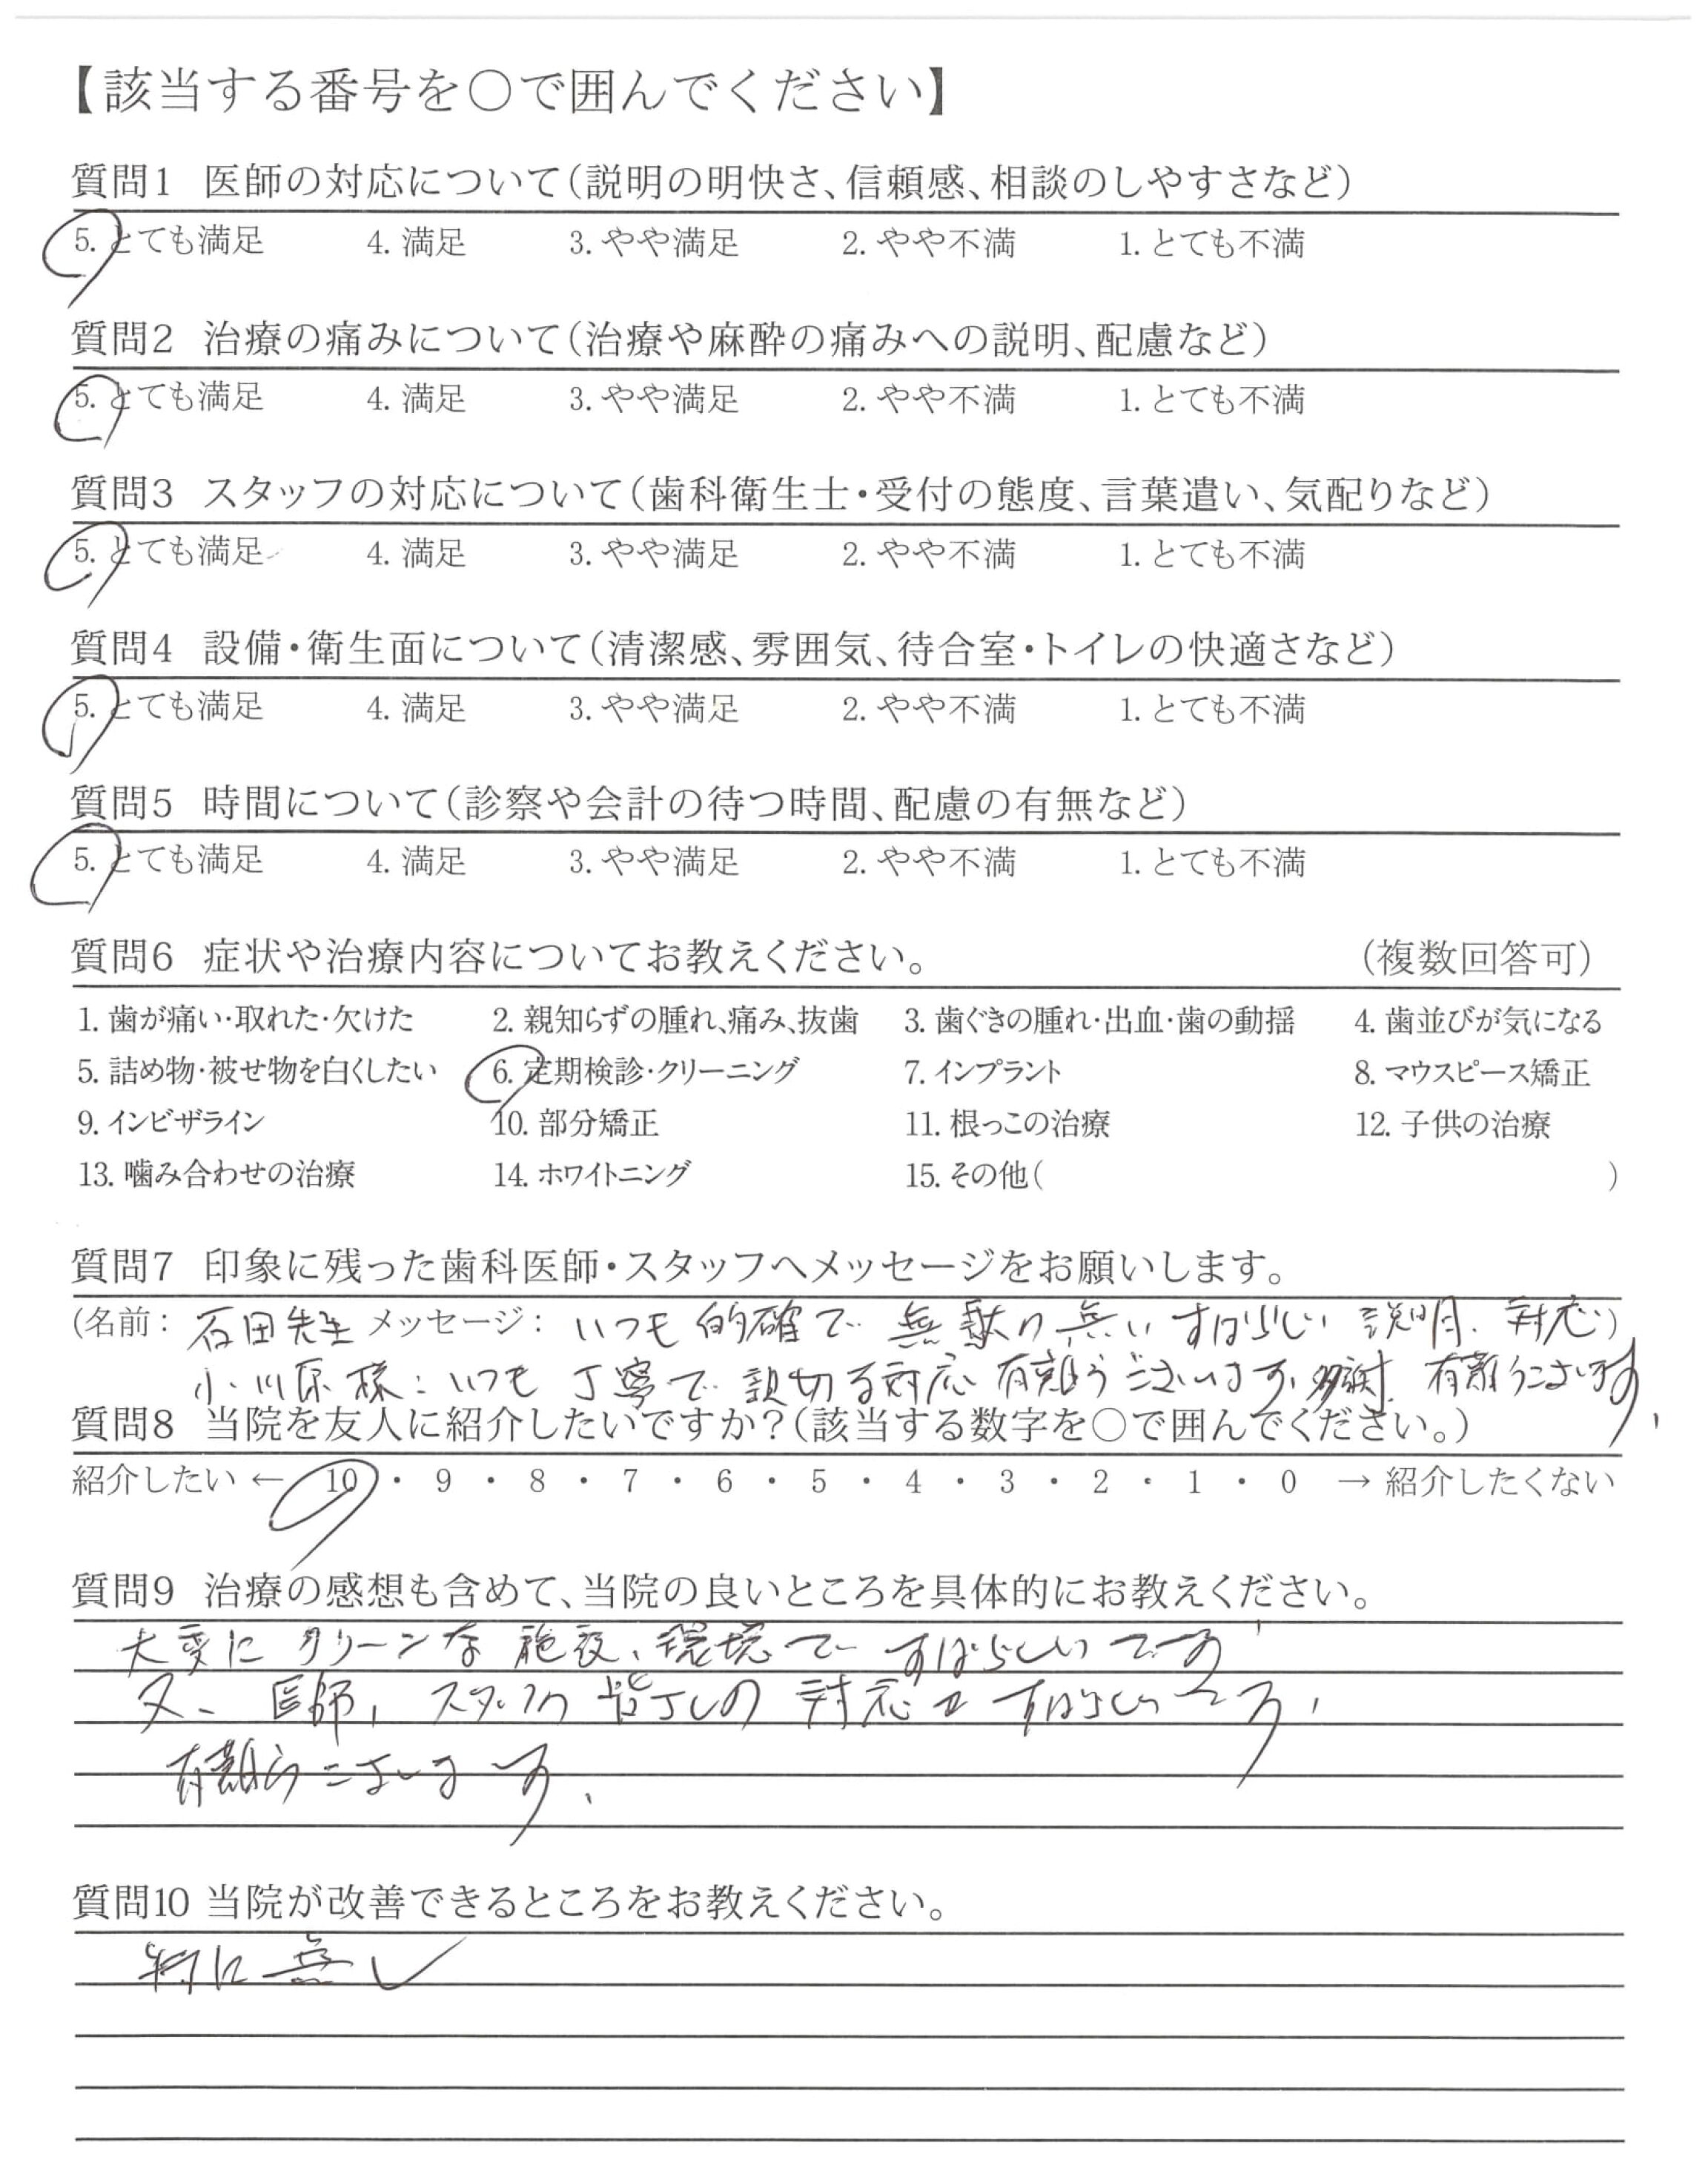 【該当する番号を○で囲んでください】
質問1 医師の対応について(説明の明快さ、信頼感、相談のしやすさなど)
5. とても満足 4. 満足 3. やや満足 2. やや不満 1. とても不満
質問2 治療の痛みについて(治療や麻酔の痛みへの説明、配慮など)
5. とても満足 4. 満足 3. やや満足 2. やや不満 1. とても不満
質問3 スタッフの対応について(歯科衛生士・受付の態度、言葉遣い、気配りなど)
5. とても満足 4. 満足 3. やや満足 2. やや不満 1. とても不満
質問4 設備・衛生面について(清潔感、雰囲気、待合室・トイレの快適さなど)
5. とても満足 4. 満足 3. やや満足 2. やや不満 1. とても不満
質問5 時間について(診察や会計の待つ時間、配慮の有無など)
5. とても満足 4. 満足 3. やや満足 2. やや不満 1. とても不満
質問6 症状や治療内容についてお教えください。 (複数回答可)
1. 歯が痛い・取れた・欠けた 2. 親知らずの腫れ、痛み、抜歯 3. 歯ぐきの腫れ・出血・歯の動揺 4. 歯並びが気になる
5. 詰め物・被せ物を白くしたい 6. 定期検診・クリーニング 7. インプラント 8. マウスピース矯正
9. インビザライン 10. 部分矯正 11. 根っこの治療 12. 子供の治療
13. 噛み合わせの治療 14. ホワイトニング 15. その他( )
質問7 印象に残った歯科医師・スタッフへメッセージをお願いします。
(名前: 石田先生 メッセージ: いつも的確で無駄の無いすばらしい説明、対応)
小川原様:いつも丁寧で親切な対応有難うございます。 有難うございます。
質問8 当院を友人に紹介したいですか?(該当する数字を○で囲んでください。)
紹介したい ← 10 ・ 9 ・ 8 ・ 7 ・ 6 ・ 5 ・ 4 ・ 3 ・ 2 ・ 1 ・ 0 → 紹介したくない
質問9 治療の感想も含めて、当院の良いところを具体的にお教えください。
大変にクリーンな施設、環境ですばらしいです
又、医師、スタッフの皆さんの対応がすばらしいです、
有難うございます。
質問10 当院が改善できるところをお教えください。
特に無し